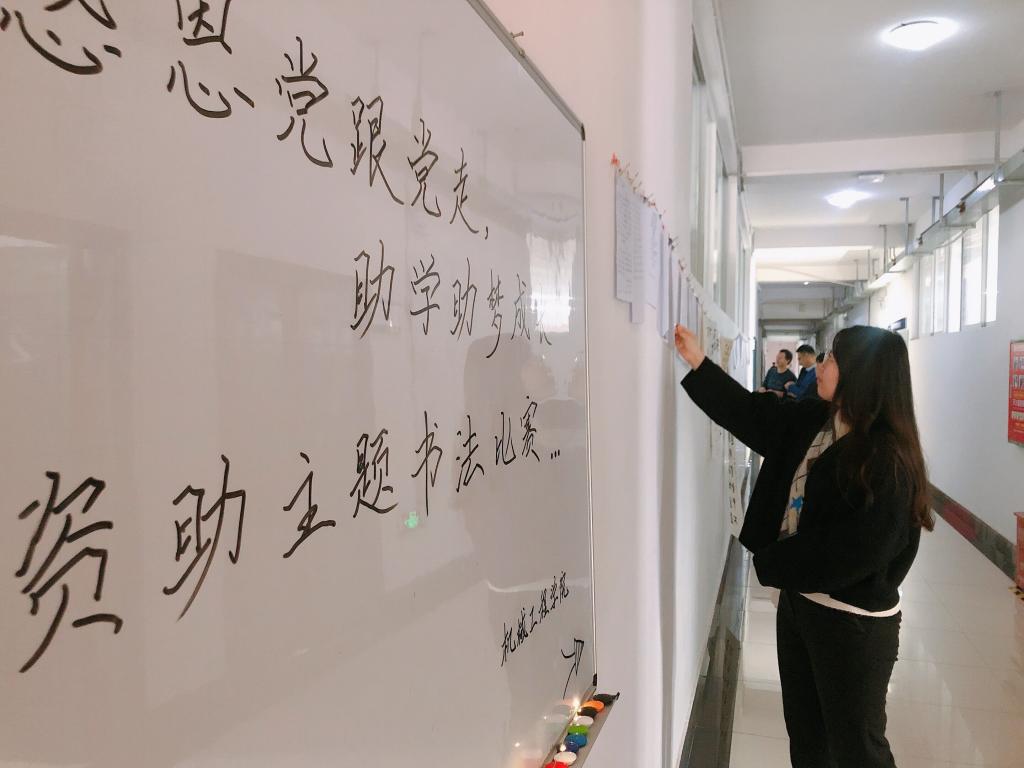 感恩党跟党走，
助学助梦成
资助主题书法比赛...
机械工程学院